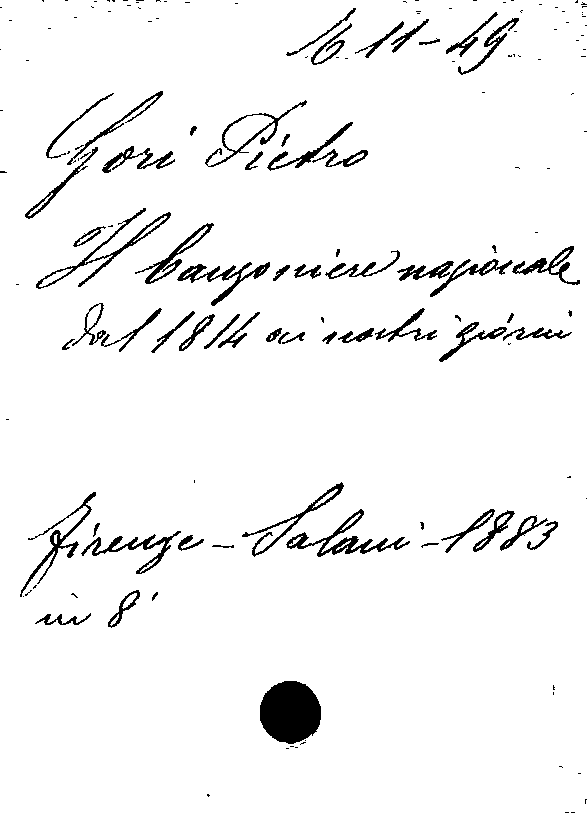 E 11-49
Gori Pietro
Il Canzoniere nazionale
dal 1814 ai nostri giorni
Firenze - Salani - 1883
in 8°